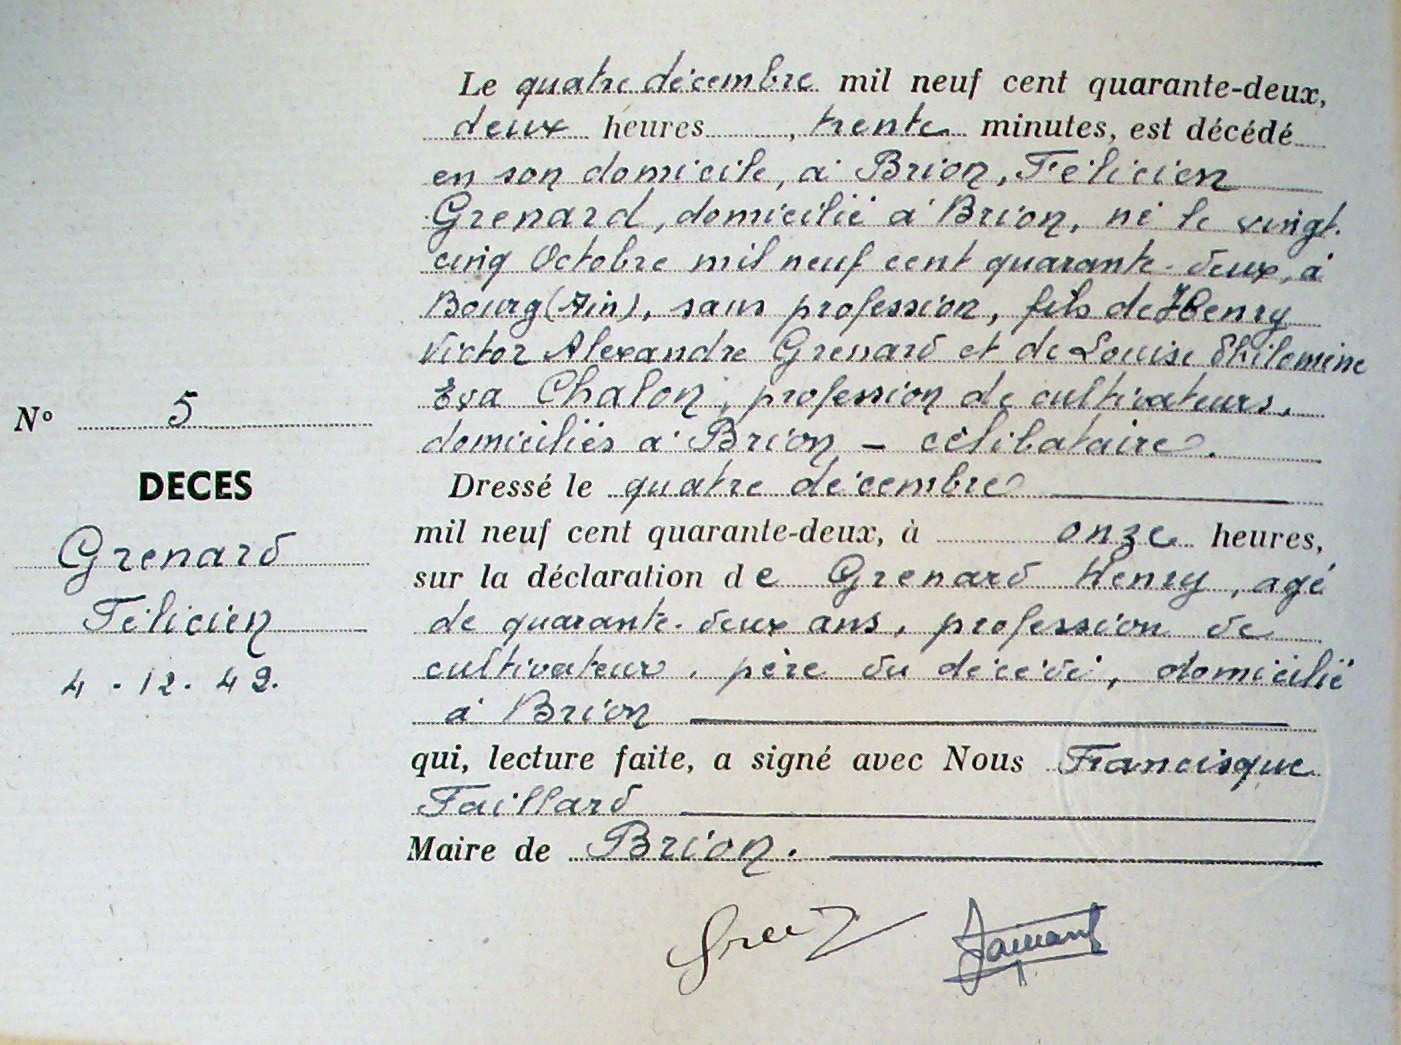 Le quatre décembre mil neuf cent quarante-deux,
deux heures, trente minutes, est décédé
en son domicile, à Brion, Félicien
Grenard, domicilié à Brion, né le vingt-
cinq Octobre mil neuf cent quarante-deux, à
Bourg (Ain), sans profession, fils de Henry
Victor Alexandre Grenard et de Louise Philomène
Eva Chalon, profession de cultivateurs,
domiciliés à Brion – célibataire.
N° 5
DECES
Grenard
Félicien
4-12-42.
Dressé le quatre décembre
mil neuf cent quarante-deux, à onze heures,
sur la déclaration de Grenard Henry, agé
de quarante-deux ans, profession de
cultivateur, père du décédé, domicilié
à Brion
qui, lecture faite, a signé avec Nous Francisque
Taillard
Maire de Brion.